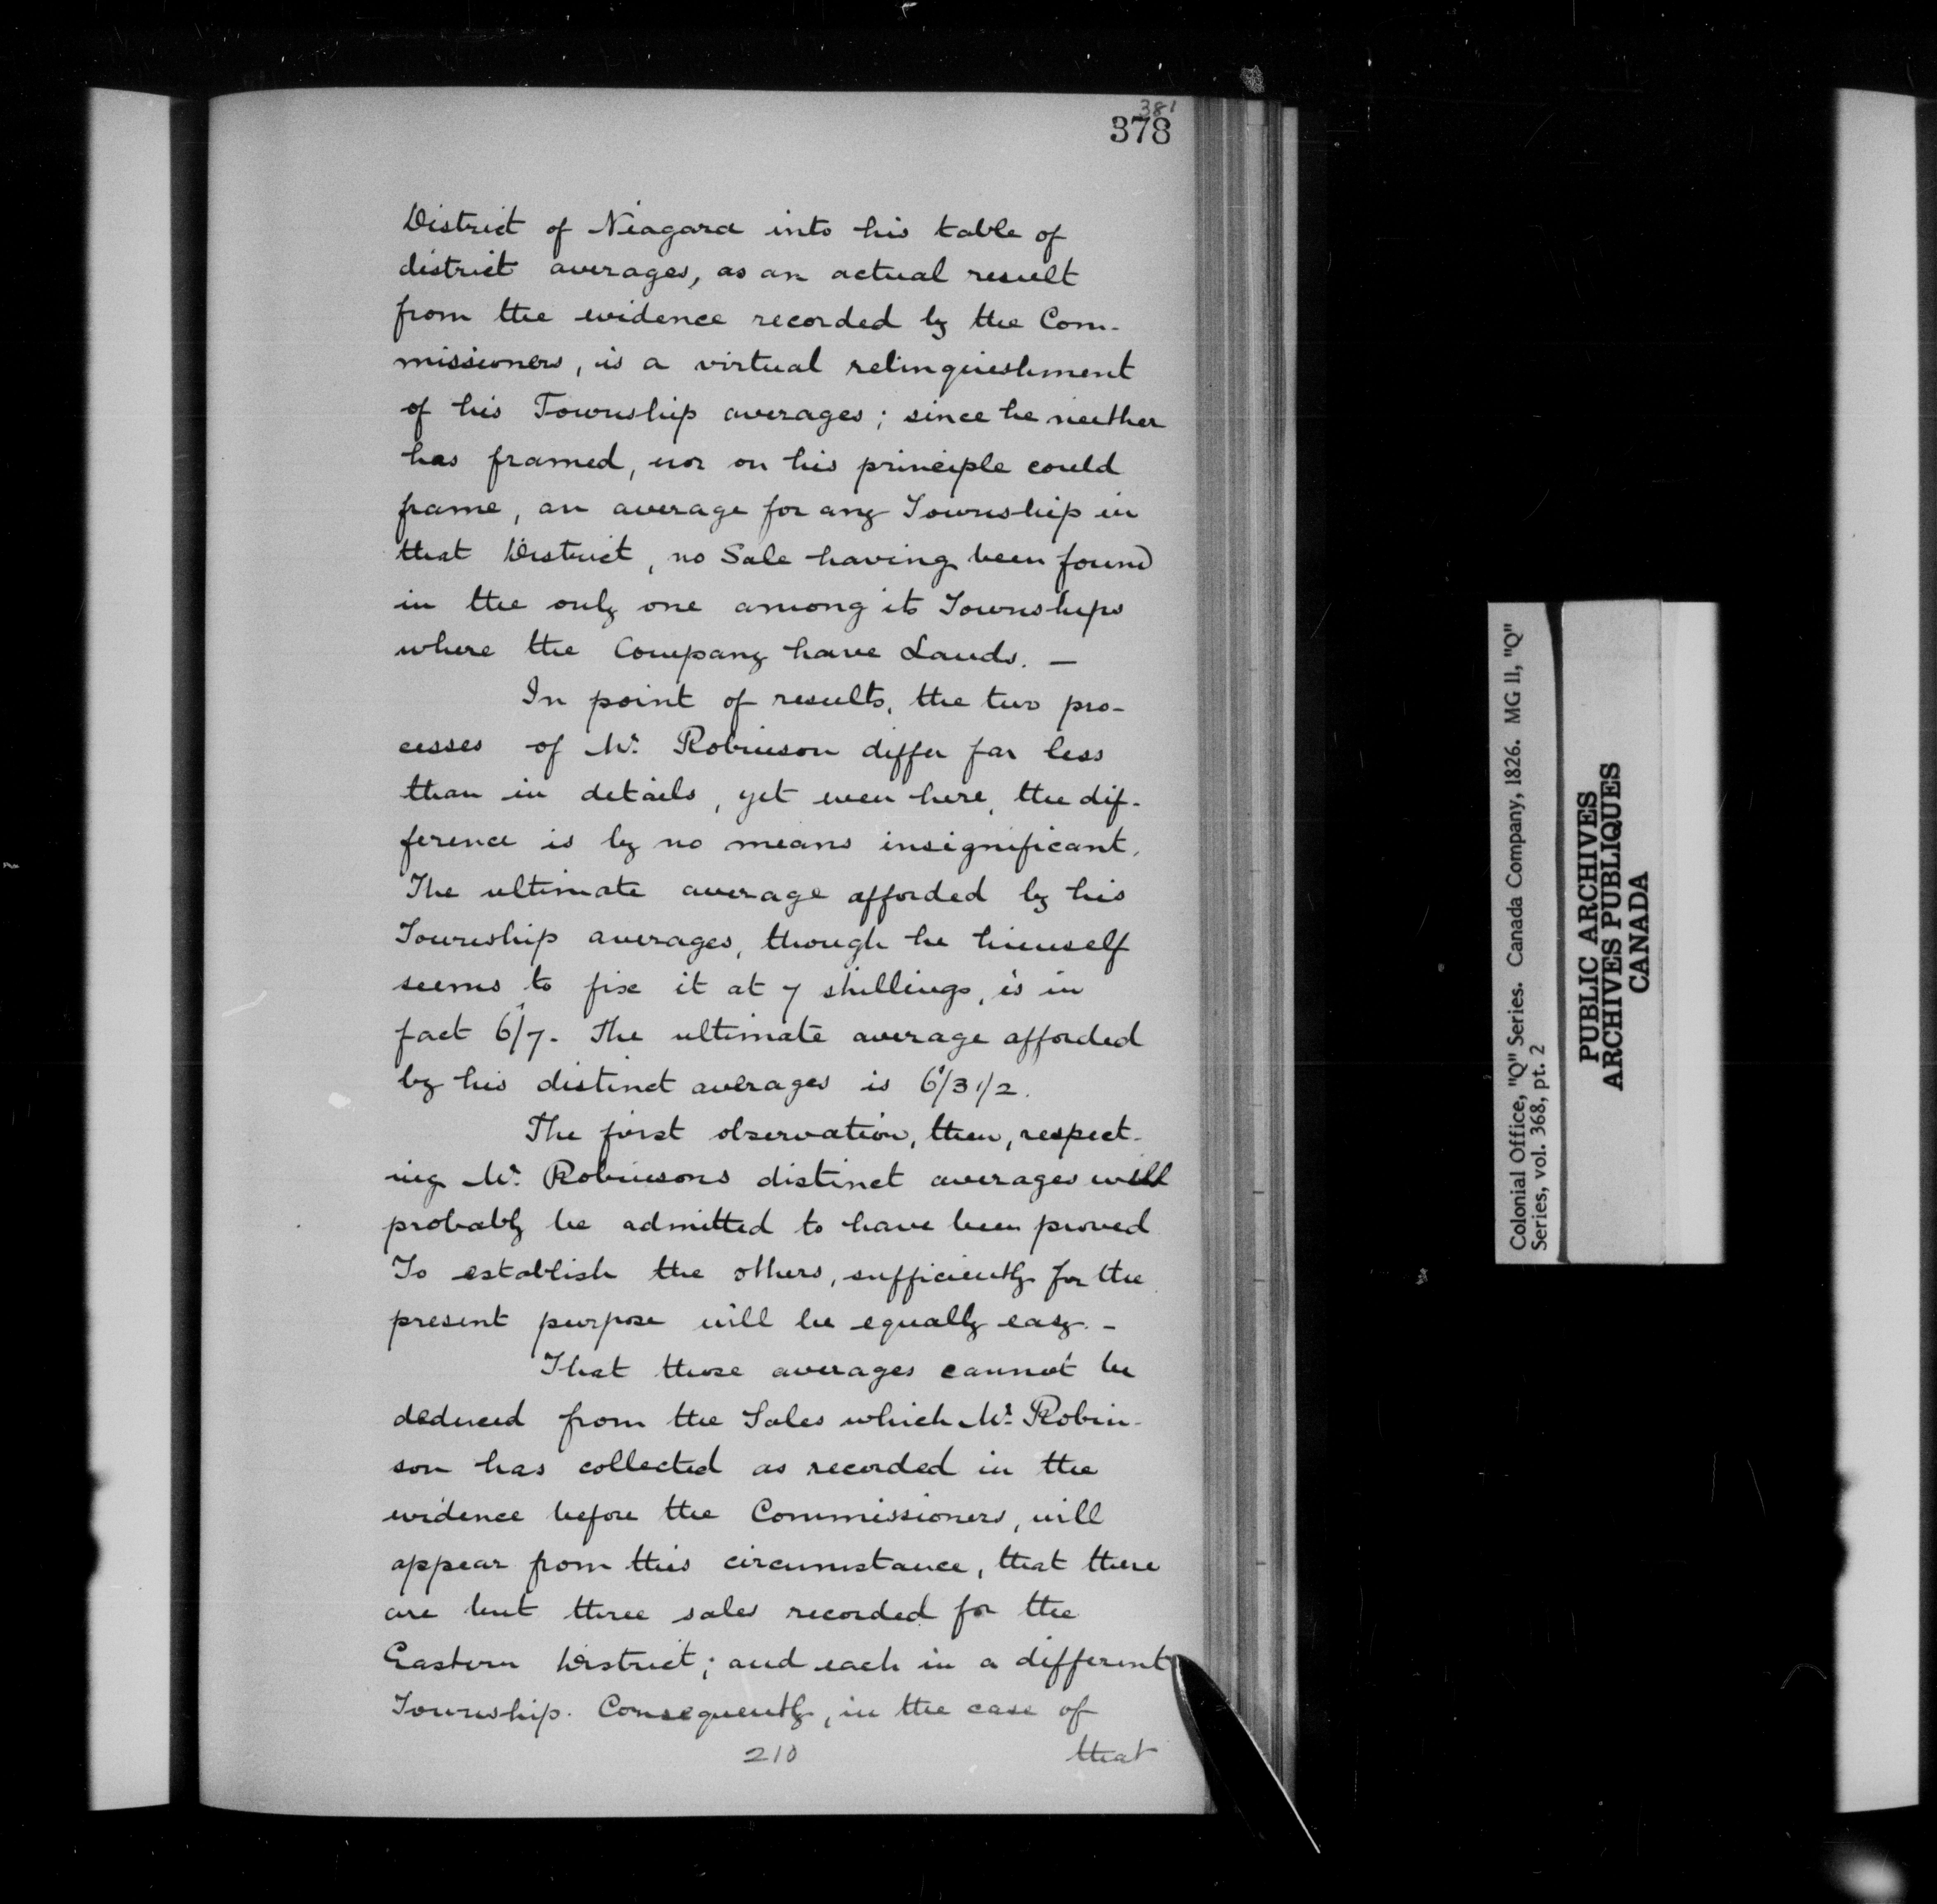 381
378
District of Niagara into his table of
district averages, as an actual result
from the evidence recorded by the Com-
missioners, is a virtual relinquishment
of his Township averages; since he neither
has framed, nor on his principle could
frame, an average for any Township in
that District, no Sale having been found
in the only one among its Townships
where the Company have Lands. —
In point of results, the two pro-
cesses of Mr. Robinson differ far less
than in details, yet even here, the dif-
ference is by no means insignificant.
The ultimate average afforded by his
Township averages, though he himself
seems to fix it at 7 shillings, is in
fact 6/7. The ultimate average afforded
by his distinct averages is 6/3 1/2.
The first observation, then, respect-
ing Mr. Robinsons distinct averages will
probably be admitted to have been proved
To establish the others, sufficiently for the
present purpose will be equally easy. -
That those averages cannot be
deduced from the Sales which Mr. Robin-
son has collected as recorded in the
evidence before the Commissioners, will
appear from this circumstance, that there
are but three sales recorded for the
Eastern District; and each in a different
Township. Consequently, in the case of
210 that
Colonial Office, "Q" Series. Canada Company, 1826. MG 11, "Q"
Series, vol. 368, pt. 2
PUBLIC ARCHIVES
ARCHIVES PUBLIQUES
CANADA